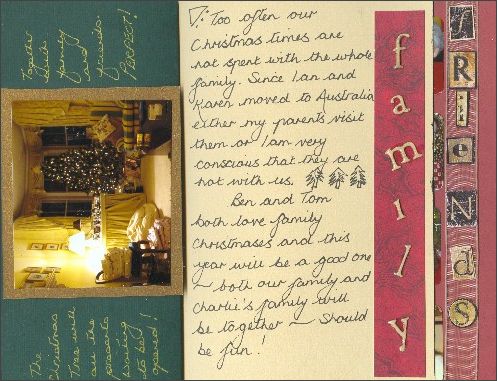 Together
with
family
and
friends.
PERFECT!
The
Christmas
Tree with
all the
presents
waiting
to be
opened!
7: Too often our
Christmas times are
not spent with the whole
family. Since Ian and
Karen moved to Australia
either my parents visit
them or I am very
conscious that they are
not with us.
Ben and Tom
both love family
Christmases and this
year will be a good one
- both our family and
Charlie's family will
be together - Should
be fun!
family
fRIeNdS